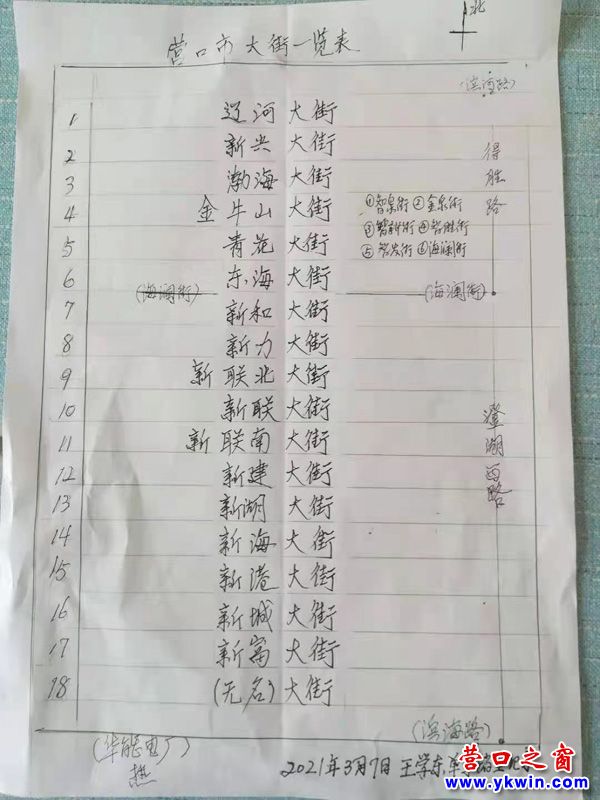 北
营口市大街一览表
(滨海路)
1 辽河大街
2 新兴大街
3 渤海大街
4 金牛山大街 ①智泉街 ②金泉街
③智新街 ④智胜街
5 青花大街 ⑤智发街 ⑥海澜街
6 东海大街
(海澜街) (海澜街)
7 新和大街
8 新力大街
9 新联北大街
10 新联大街
11 新联南大街
12 新建大街
13 新湖大街
14 新海大街
15 新港大街
16 新城大街
17 新富大街
18 (无名)大街
得胜路
澄湖西路
(滨海路)
(华能电厂)
热
2021年3月7日 王学东
营口之窗
www.ykwin.com